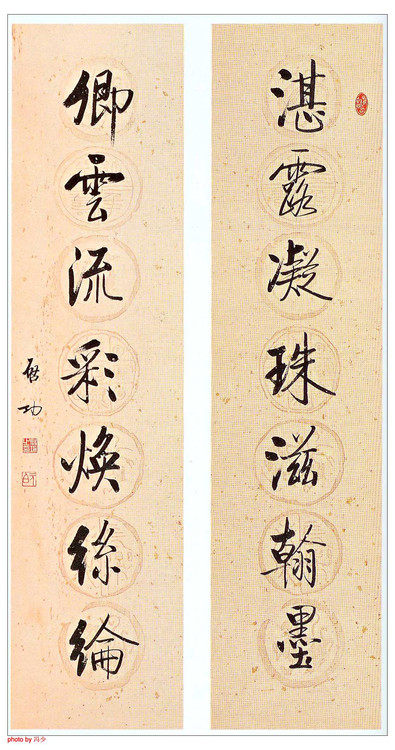 湛露凝珠滋翰墨
卿雲流彩焕絲綸
啓功
photo by 冯少